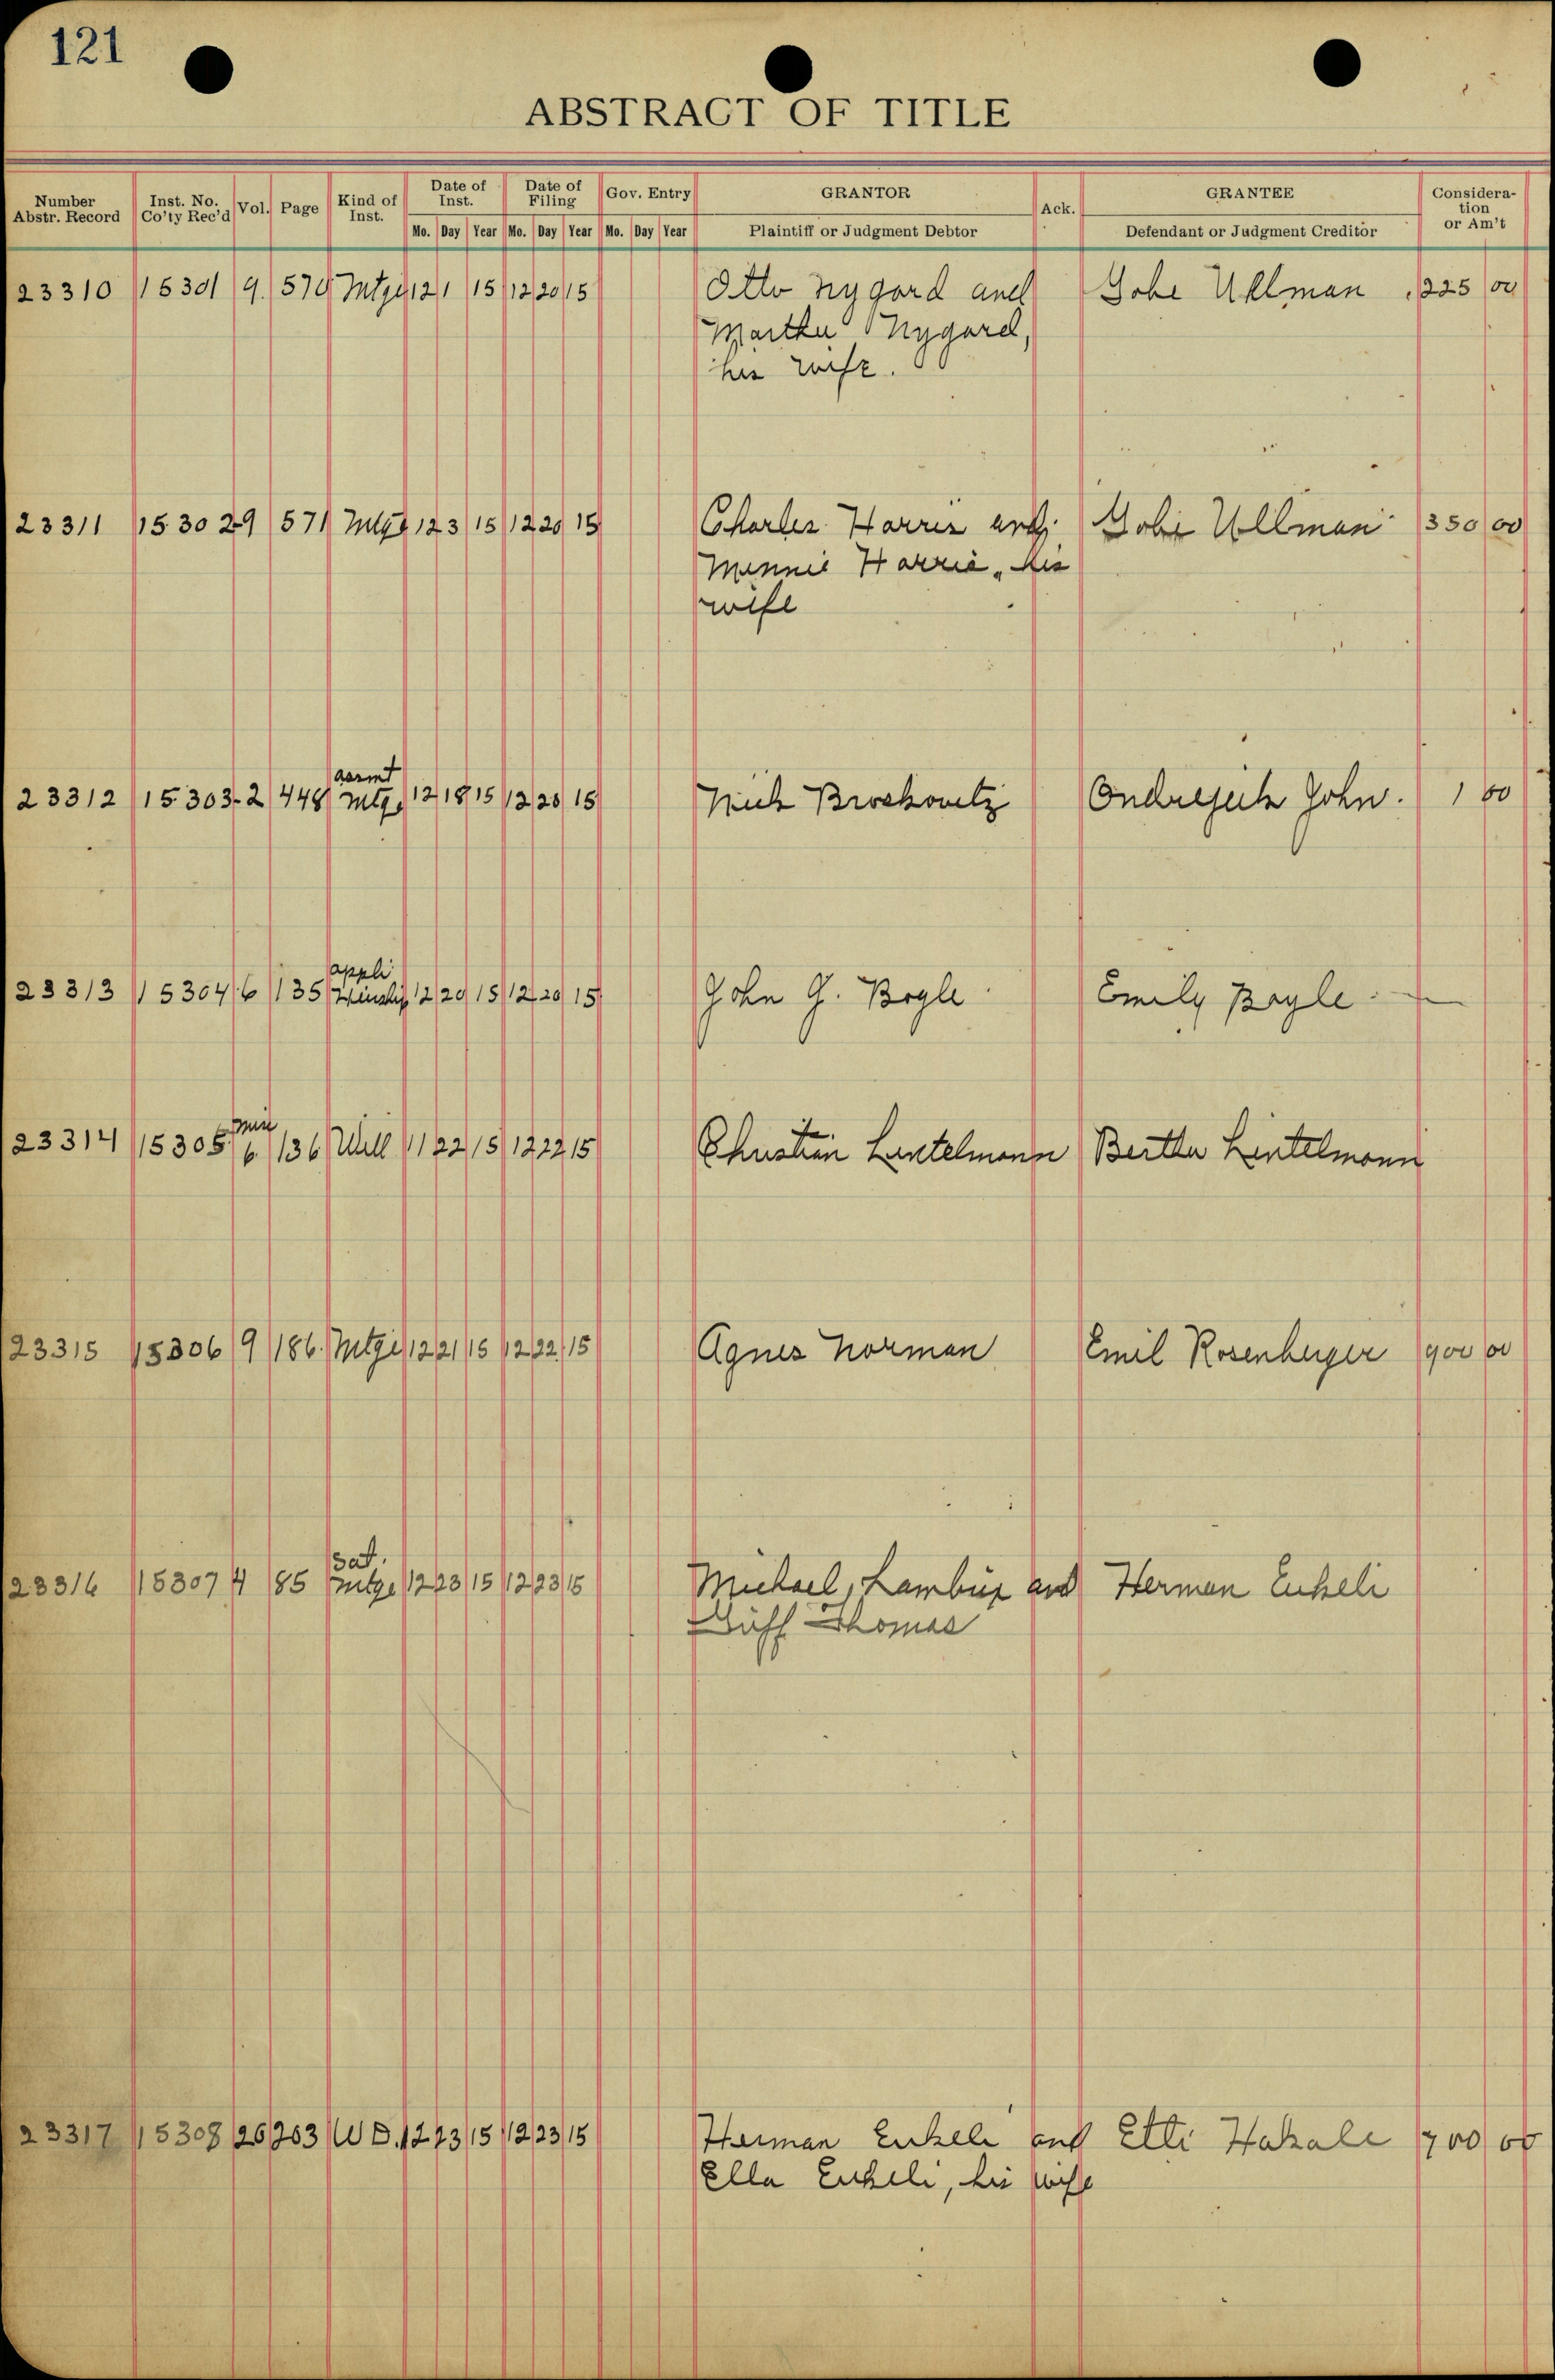 121
ABSTRACT OF TITLE
Number Abstr. Record | Inst. No. Co'ty Rec'd | Vol. | Page | Kind of Inst. | Date of Inst. Mo. Day Year | Date of Filing Mo. Day Year | Gov. Entry Mo. Day Year | GRANTOR Plaintiff or Judgment Debtor | Ack. | GRANTEE Defendant or Judgment Creditor | Consideration or Am't
23310 15301 9 570 Mtge 12 1 15 12 20 15 Otto Nygard and Gobe Ullman 225 00
Martha Nygard,
his wife.
23311 15302 9 571 Mtge 12 3 15 12 20 15 Charles Harris and Gobe Ullman 350 00
Minnie Harris, his
wife
asmt
23312 15303 2 448 Mtge 12 18 15 12 20 15 Nick Broskovetz John. 1 00
appli
23313 15304 6 135 12 20 15 12 20 15 John G. Bogle Emily Bogle
Mis
23314 15305 6 136 Will 11 22 15 12 22 15 Christian Lintelmann Bertha Lintelmann
23315 15306 9 186 Mtge 12 21 15 12 22 15 Agnes Norman Emil Rosenberger 900 00
Sat.
23316 15307 4 85 mtge 12 23 15 12 23 15 Michael, and Herman Eukeli
Duff Thomas
23317 15308 26 203 W D. 12 23 15 12 23 15 Herman Eukeli and Etti Hakale 700 00
Ella Eukeli, his wife